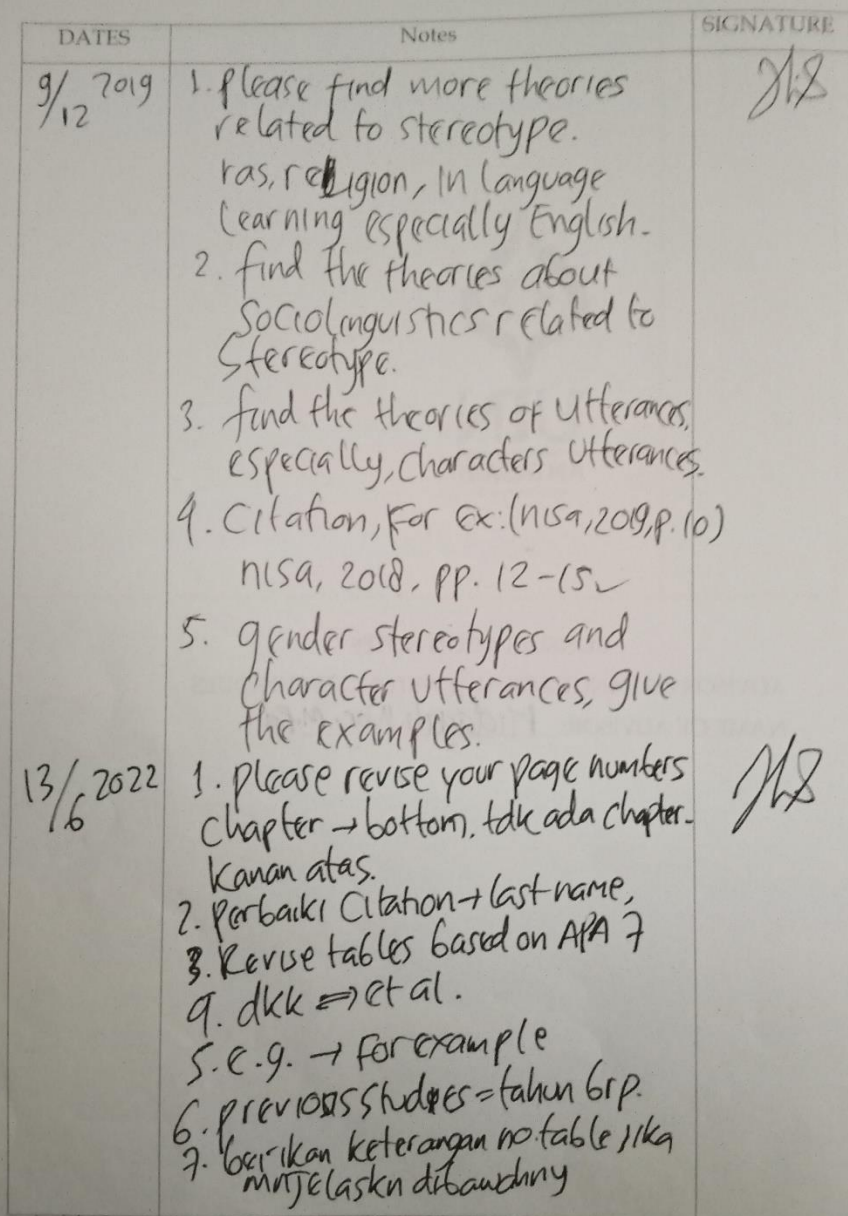 DATES Notes SIGNATURE
9/12 2019 1. Please find more theories
related to stereotype.
ras, religion, in language
learning especially English.
2. find the theories about
Sociolinguistics related to
Stereotype.
3. find the theories of Utterances,
especially, characters Utterances.
4. Citation, For Ex: (nisa, 2019, p. 10)
nisa, 2018, pp. 12-15
5. gender stereotypes and
Character utterances, give
the examples.
13/6 2022 1. please revise your page numbers
Chapter → bottom. tdk ada chapter.
Kanan atas.
2. Perbaiki Citation → last name,
3. Revise tables based on APA 7
4. dkk ⇒ et al.
5. e.g. → for example
6. previous studies = tahun brp.
7. berikan keterangan no. table jika
mnjelaskn dibawahny